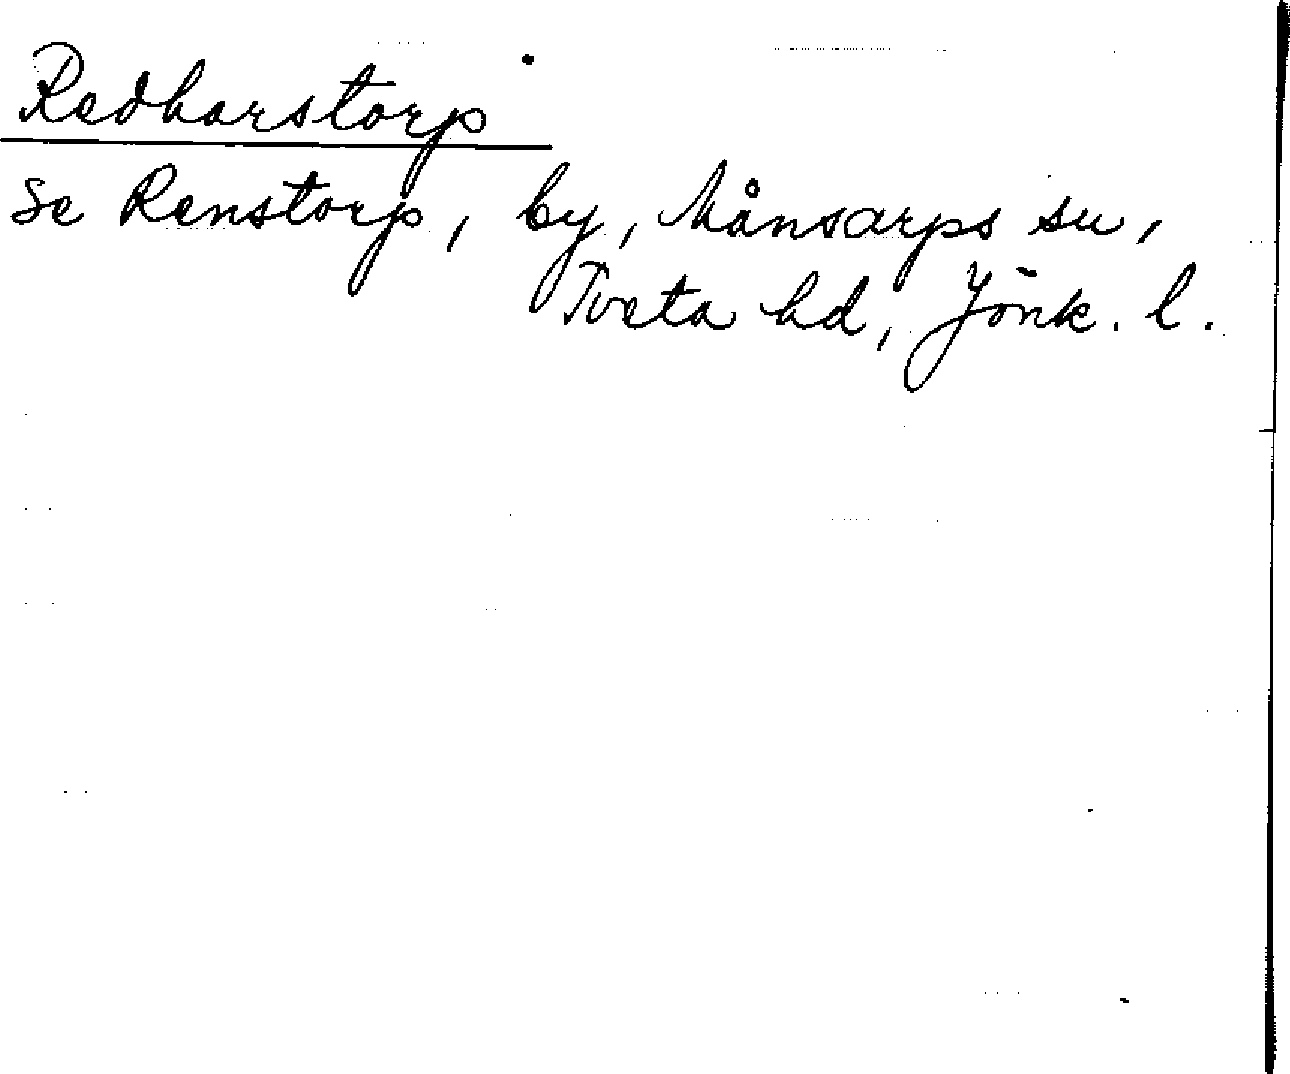 Redharstorp
Se Renstorp, by, Månsarps sn,
Tveta hd, Jönk. l.